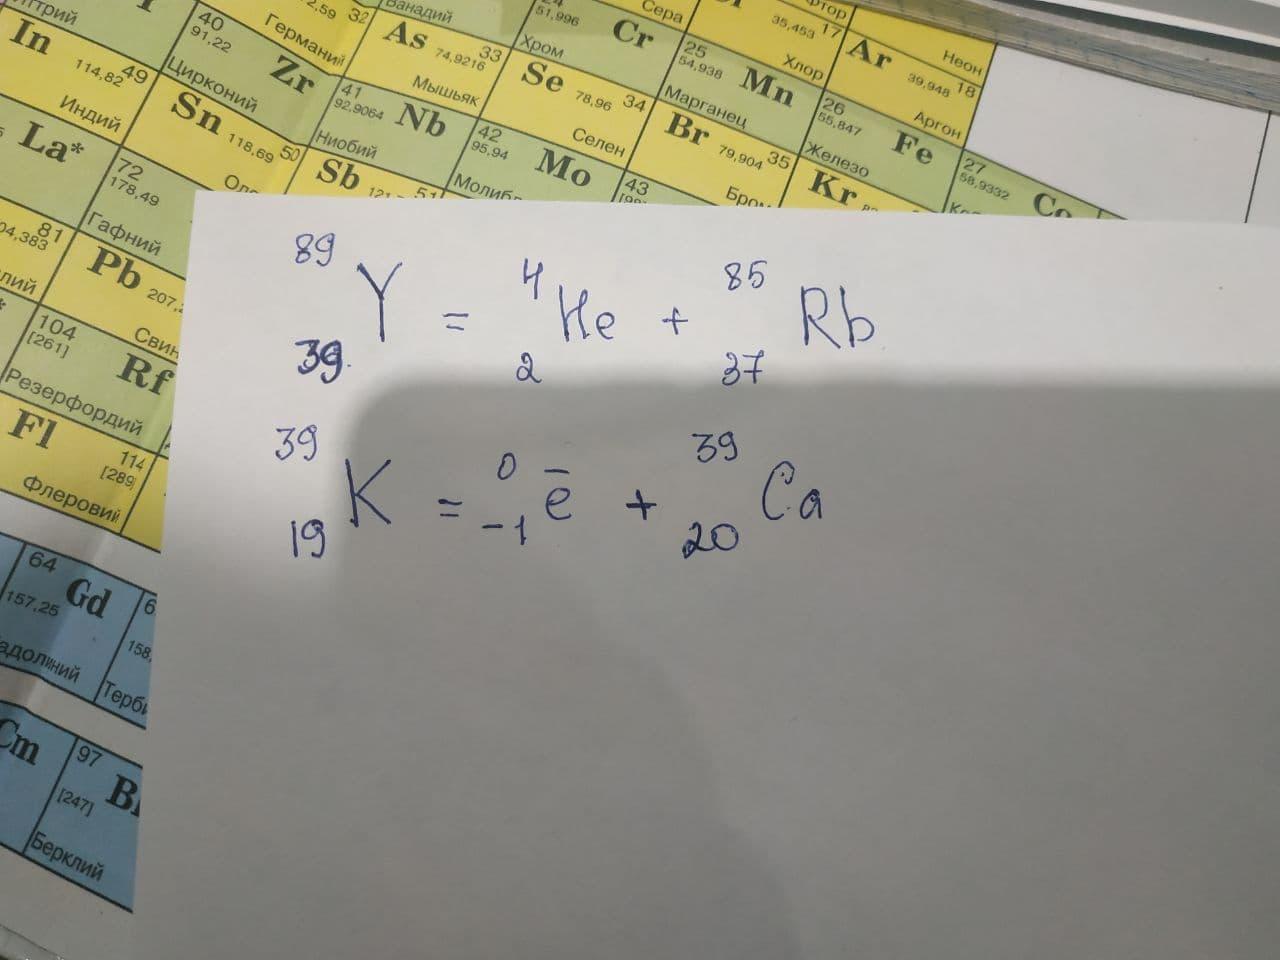 итрий
In
49
114,82
Индий
40
91,22
Zr
Цирконий
2,59 32
Германий
Ванадий
As
33
74,9216
Мышьяк
51,996
Cr
Хром
Сера
25
54,938
Mn
Марганец
35,453 17
Хлор
Ar
39,948 18
Аргон
Неон
Sn
118,69 50
41
92,9064
Nb
Ниобий
Se
78,96 34
Селен
42
95,94
Mo
Br
79,904 35
26
55,847
Fe
Железо
27
58,9332
Co
La*
72
178,49
Гафний
Sb
43
Kr
81
04,383
Pb
207,
104
[261]
Rf
Резерфордий
Fl
114
[289]
Флеровий
64
157,25
Gd
Cm
97
[247]
Берклий
89 39 Y = 4 2 He + 85 37 Rb
39 19 K = 0 -1 ē + 39 20 Ca